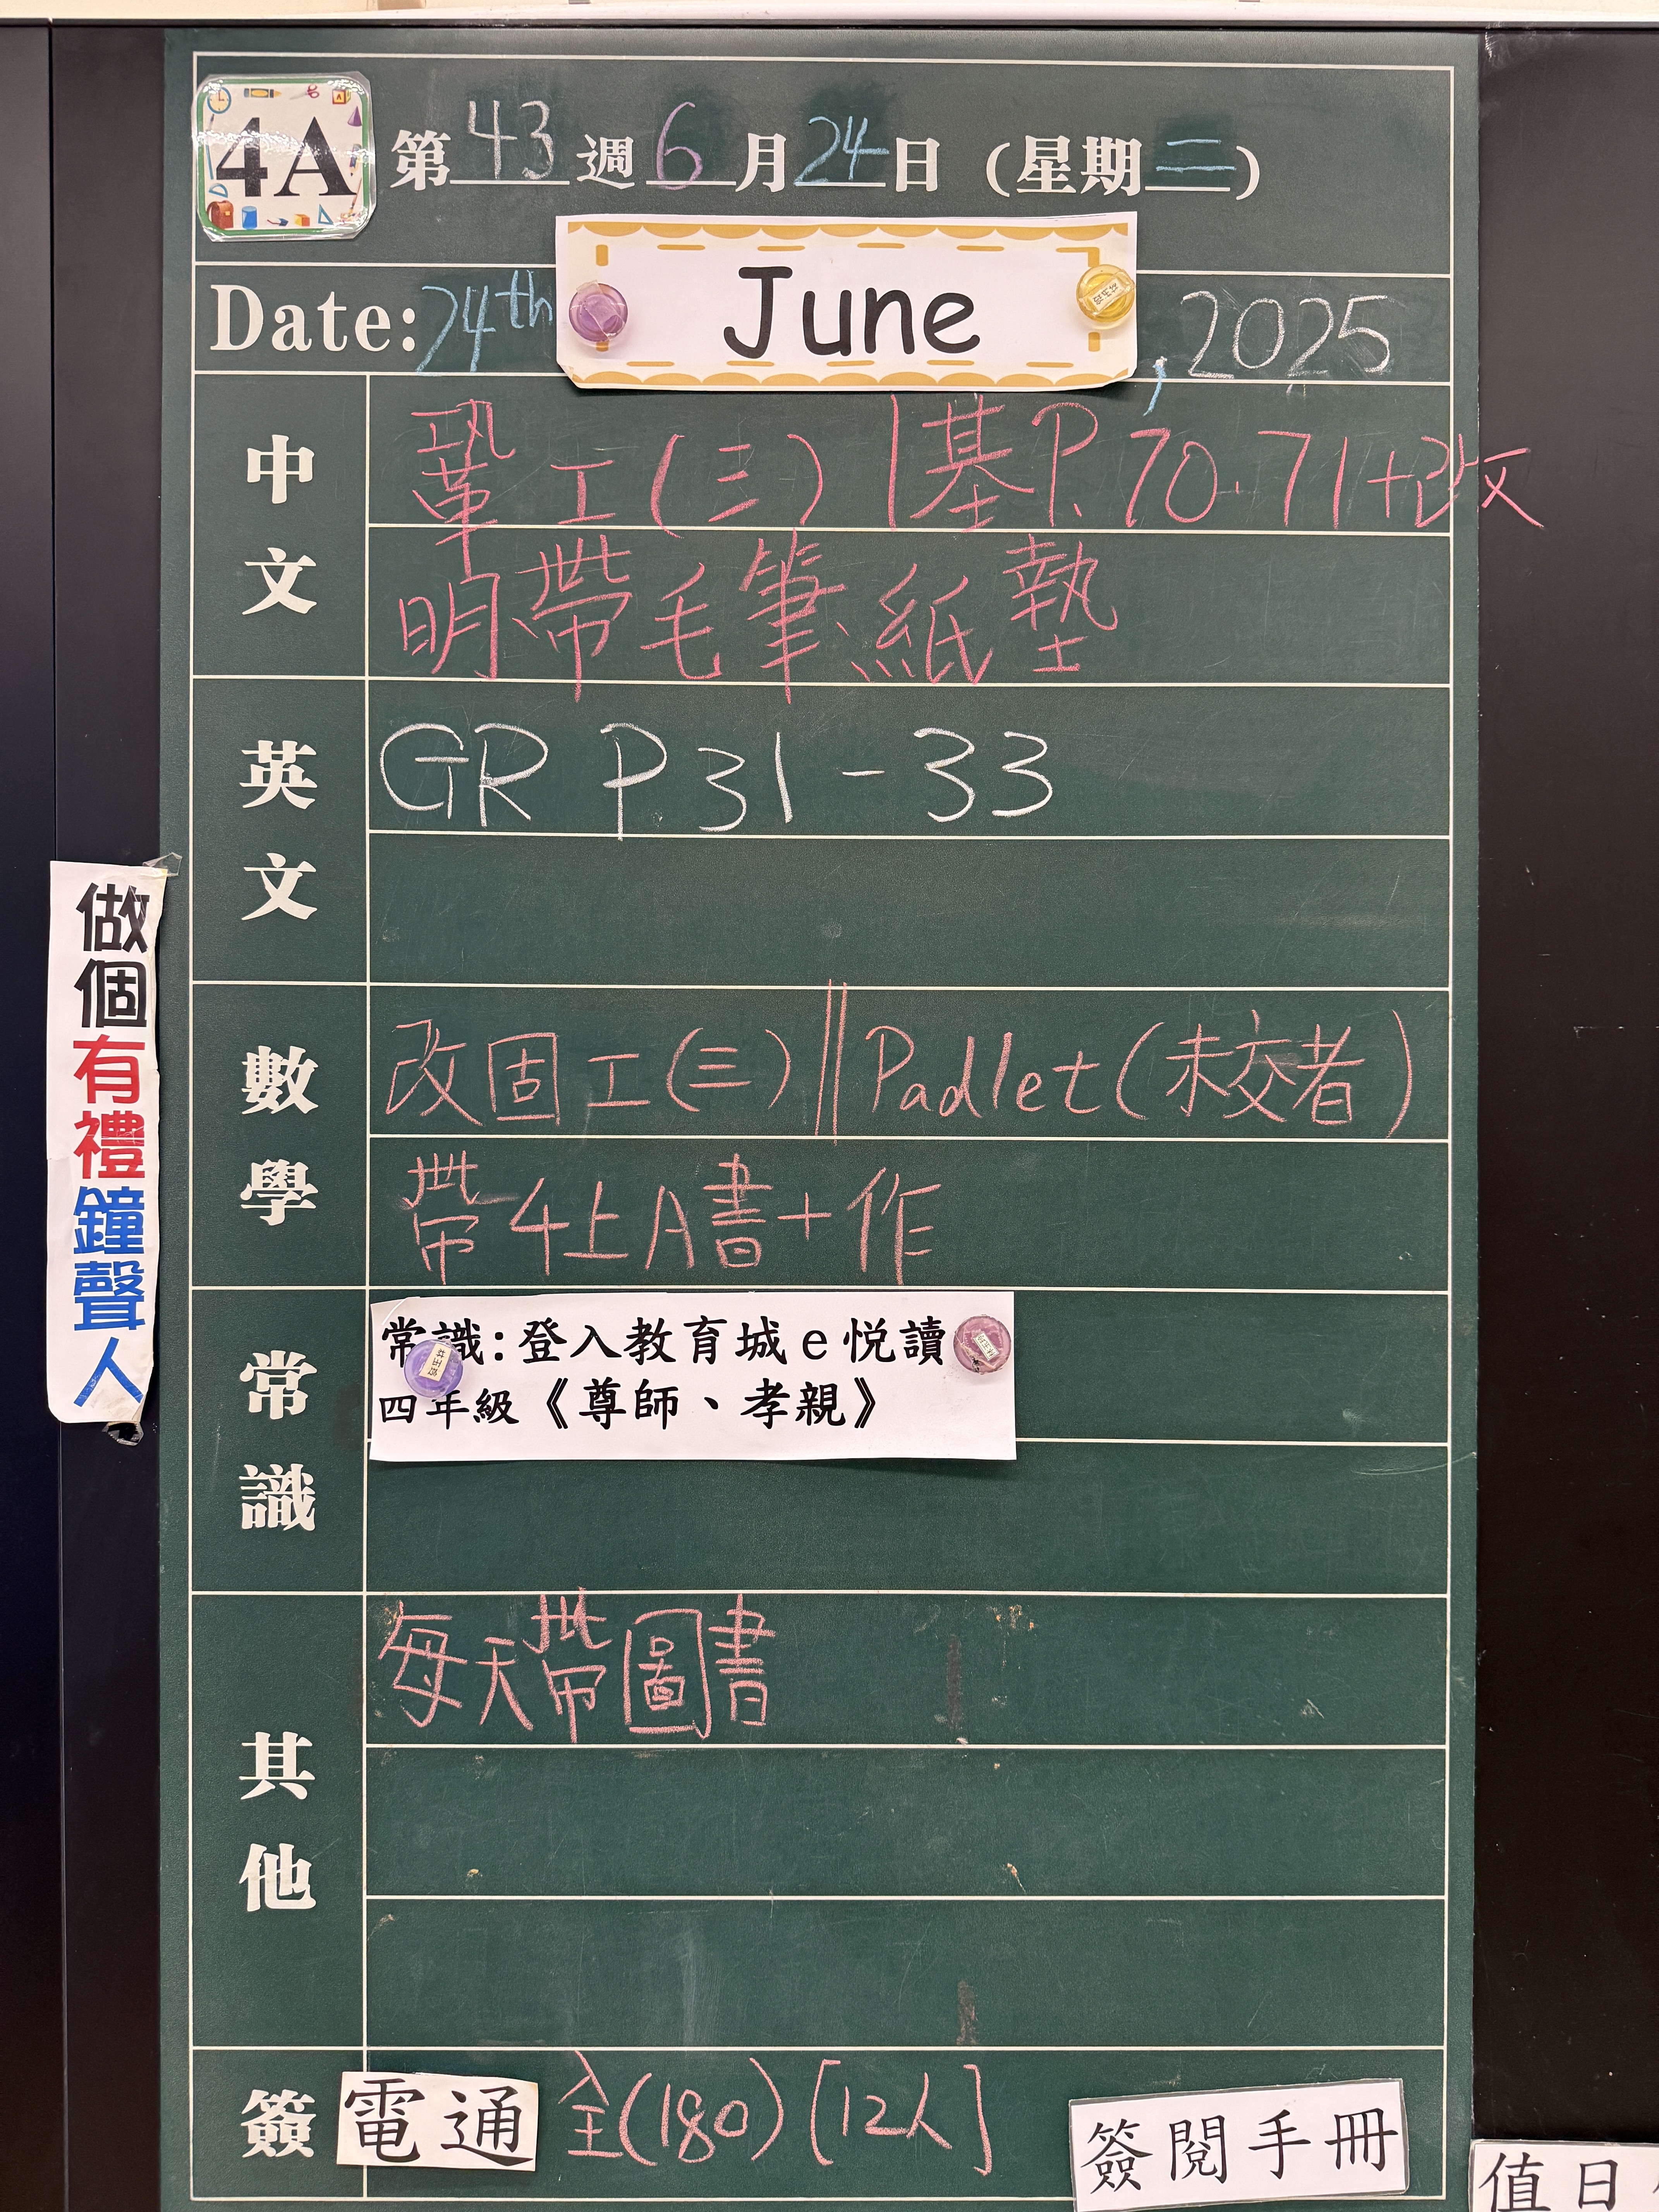 4A 第43週6月24日(星期二)
Date: 24th June, 2025
中文
鞏工(三) | 基P.70.71+改
明帶毛筆、紙墊
英文
GR P.31-33
數學
改固工(三) || Padlet(未交者)
帶4上A書+作
常識
常識:登入教育城e悅讀
四年級《尊師、孝親》
其他
每天帶圖書
簽 電通 全(180)[12人] 簽閱手冊
值日
做個有禮鐘聲人